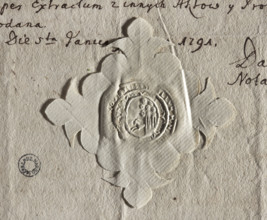 pes Extractum z innych Aktow y Pro
odana
Die 5ta Januar 1791.
Da
Nota